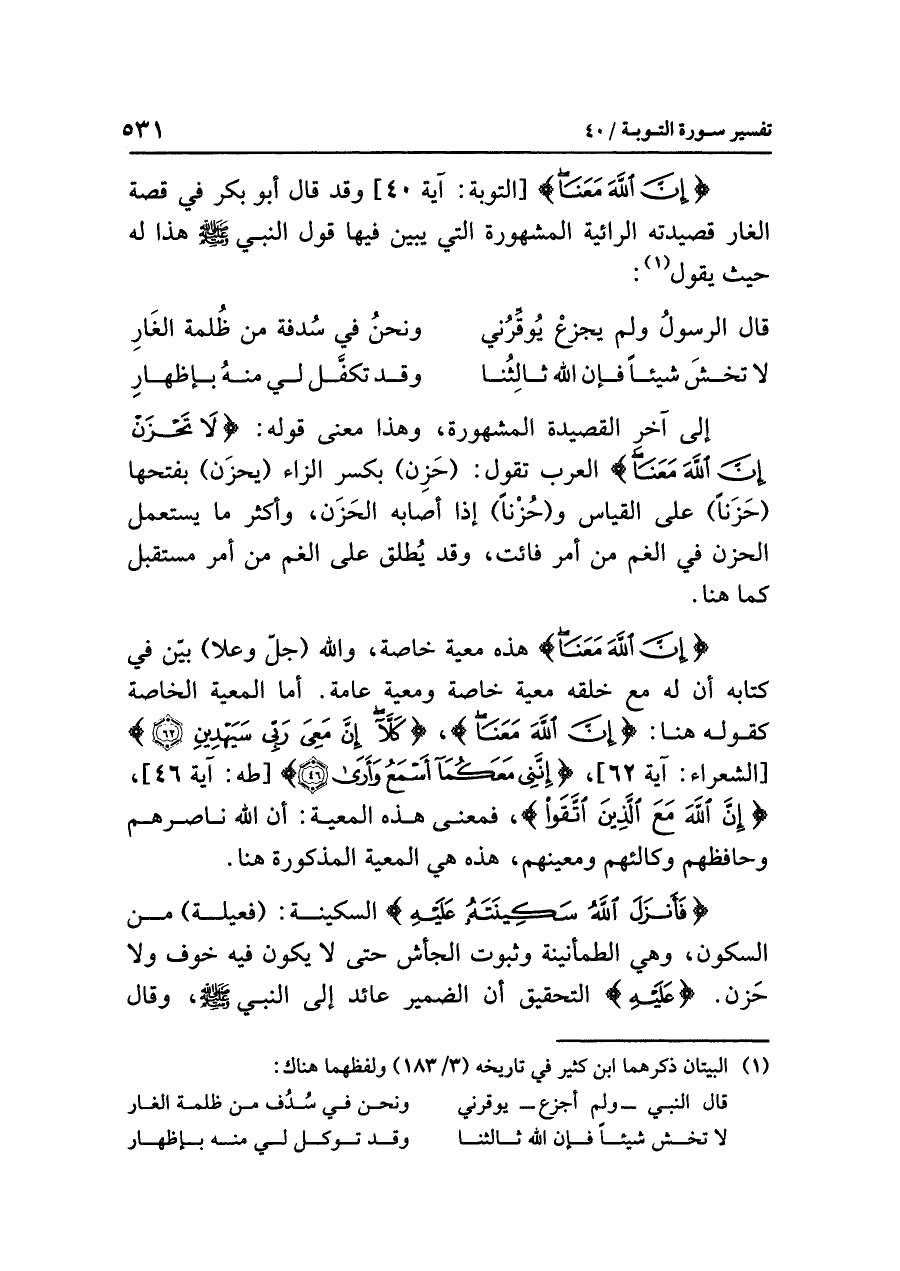 تفسير سورة التوبة / ٤٠
٥٣١
﴿ إِنَّ ٱللَّهَ مَعَنَاۖ﴾ [التوبة: آية ٤٠] وقد قال أبو بكر في قصة
الغار قصيدته الرائية المشهورة التي يبين فيها قول النبي ﷺ هذا له
حيث يقول(١):
قال الرسولُ ولم يجزعْ يُوقِّرُني ونحنُ في سُدفة من ظُلمة الغَارِ
لا تخشَ شيئاً فإن الله ثالِثُنا وقد تكفَّل لي منهُ بإظهارِ
إلى آخر القصيدة المشهورة، وهذا معنى قوله: ﴿لَا تَحۡزَنۡ
إِنَّ ٱللَّهَ مَعَنَاۖ﴾ العرب تقول: (حَزِن) بكسر الزاء (يحزَن) بفتحها
(حَزَناً) على القياس و(حُزْناً) إذا أصابه الحَزَن، وأكثر ما يستعمل
الحزن في الغم من أمر فائت، وقد يُطلق على الغم من أمر مستقبل
كما هنا.
﴿ إِنَّ ٱللَّهَ مَعَنَاۖ﴾ هذه معية خاصة، والله (جلّ وعلا) بيّن في
كتابه أن له مع خلقه معية خاصة ومعية عامة. أما المعية الخاصة
كقوله هنا: ﴿ إِنَّ ٱللَّهَ مَعَنَاۖ﴾، ﴿كَلَّآۖ إِنَّ مَعِىَ رَبِّى سَيَهۡدِينِ ٦٢ ﴾
[الشعراء: آية ٦٢]، ﴿إِنَّنِى مَعَكُمَآ أَسۡمَعُ وَأَرَىٰ ٤٦﴾ [طه: آية ٤٦]،
﴿ إِنَّ ٱللَّهَ مَعَ ٱلَّذِينَ ٱتَّقَواْ ﴾، فمعنى هذه المعية: أن الله ناصرهم
وحافظهم وكالئهم ومعينهم، هذه هي المعية المذكورة هنا.
﴿فَأَنزَلَ ٱللَّهُ سَكِينَتَهُۥ عَلَيۡهِ ﴾ السكينة: (فعيلة) من
السكون، وهي الطمأنينة وثبوت الجأش حتى لا يكون فيه خوف ولا
حَزن. ﴿عَلَيۡهِ ﴾ التحقيق أن الضمير عائد إلى النبي ﷺ، وقال
(١) البيتان ذكرهما ابن كثير في تاريخه (٣/ ١٨٣) ولفظهما هناك:
قال النبي ـ ولم أجزع ـ يوقرني ونحن في سُدُف من ظلمة الغار
لا تخش شيئاً فإن الله ثالثنا وقد توكل لي منه بإظهار